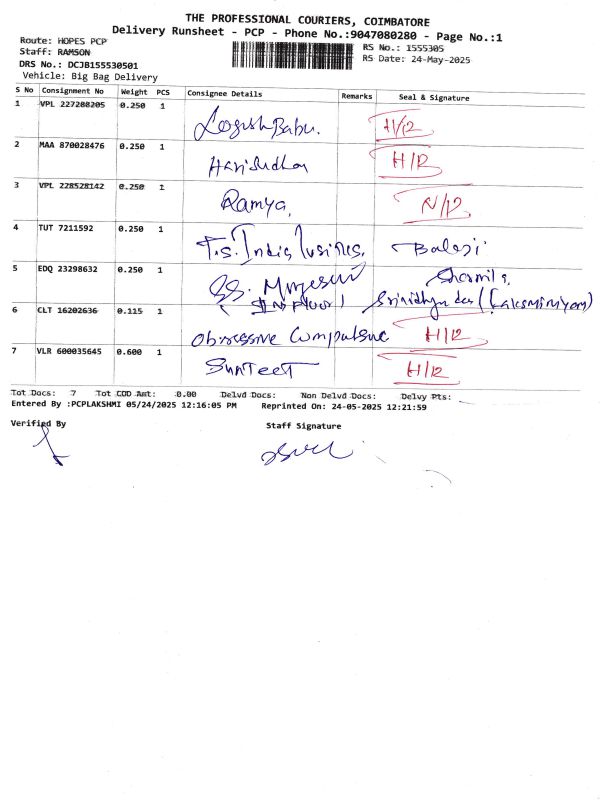 THE PROFESSIONAL COURIERS, COIMBATORE
Delivery Runsheet - PCP - Phone No.:9047080280 - Page No.:1
Route: HOPES PCP
Staff: RAMSON
DRS No.: DCJB155530501
Vehicle: Big Bag Delivery
RS No.: 1555305
RS Date: 24-May-2025
S No Consignment No Weight PCS Consignee Details Remarks Seal & Signature
1 VPL 227208205 0.250 1 H/12
2 MAA 870028476 0.250 1 H/12
3 VPL 228528142 0.250 1 Ramya, N/12
4 TUT 7211592 0.250 1 T.s. India Balaji
5 EDQ 23298632 0.250 1 SS.
Floor
6 CLT 16202636 0.115 1 Obsessive Compulsive H/12
7 VLR 600035645 0.600 1 SunTeet H/12
Tot Docs: 7 Tot COD Amt: 0.00 Delvd Docs: Non Delvd Docs: Delvy Pts:
Entered By :PCPLAKSHMI 05/24/2025 12:16:05 PM Reprinted On: 24-05-2025 12:21:59
Verified By Staff Signature